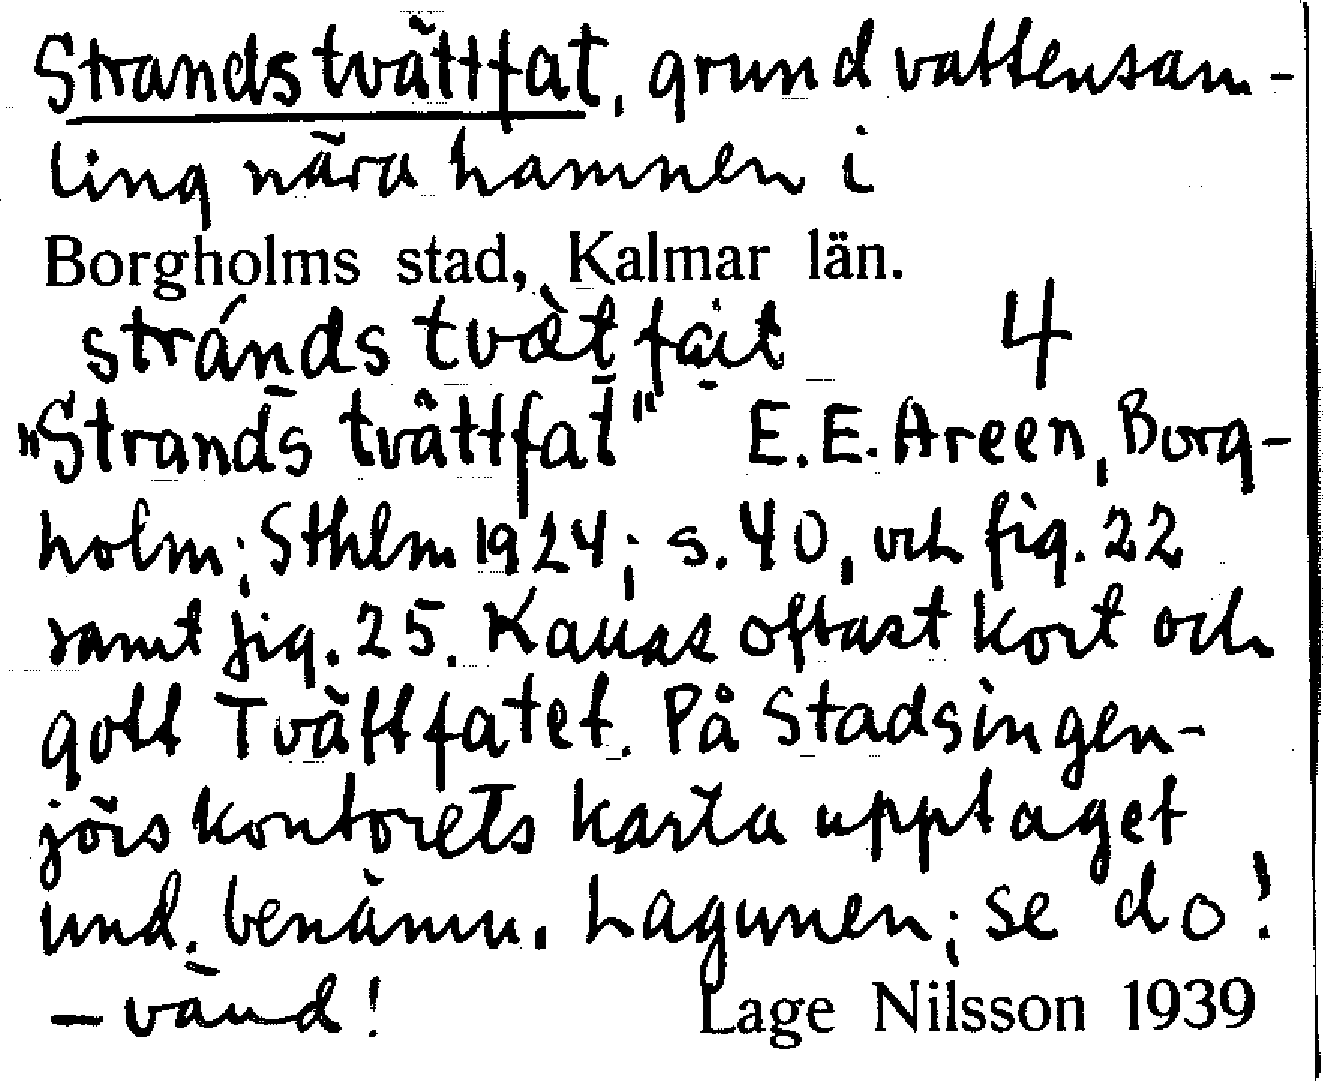 Strandstvättfat, grund vattensam-
ling nära hamnen i
Borgholms stad, Kalmar län.
stránds tvät fat 4
"Strands tvättfat" E. E. Areen, Borg-
holm; Sthlm 1924; s. 40, och fig. 22
samt fig. 25. Kallas oftast kort och
gott Tvättfatet. På Stadsingen-
jörskontorets karta upptaget
und. benämn. Lagunen; se do!
– vänd! Lage Nilsson 1939